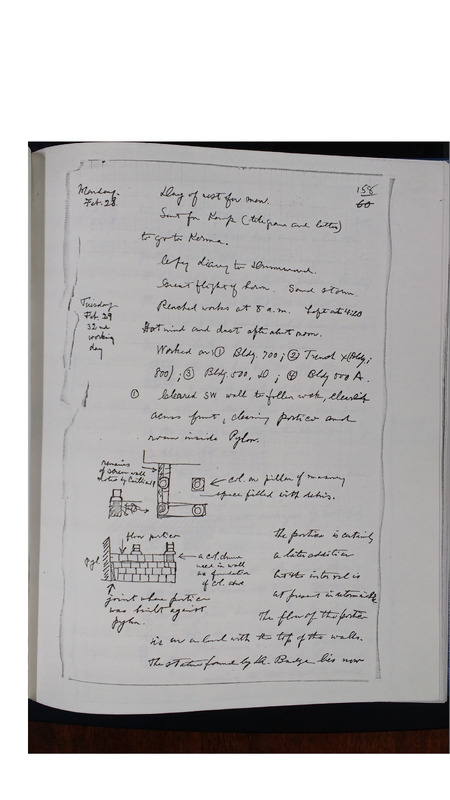 158
60
Monday
Feb. 28
Day of rest for men.
Sent for Kemp (telegram and letter)
to go to Kerma.
Copy diary to Drummond.
Great flight of Sand storm.
Tuesday
Feb. 29
32nd
working
day
Reached works at 8 a.m. Left at 4:20
Hot wind and dust after about noon.
Worked on: ① Bldg. 700; ② Trench X (Bldg.
800); ③ Bldg. 500, D; ④ Bldg 500 A.
① Cleared SW wall to follow
across front, clearing portico and
room inside Pylon.
remains
of screen wall
noted by Cailliaud
col. on pillar of masonry
space filled with debris.
floor portico
Pyl
a col. drum
used in wall
as foundation
of col. above
joint where portico
was built against
pylon.
the portico is certainly
a later addition
but the interval is
at present indeterminable
The floor of the portico
is on a level with the top of the walls.
The statue found by Dr. Budge lies now